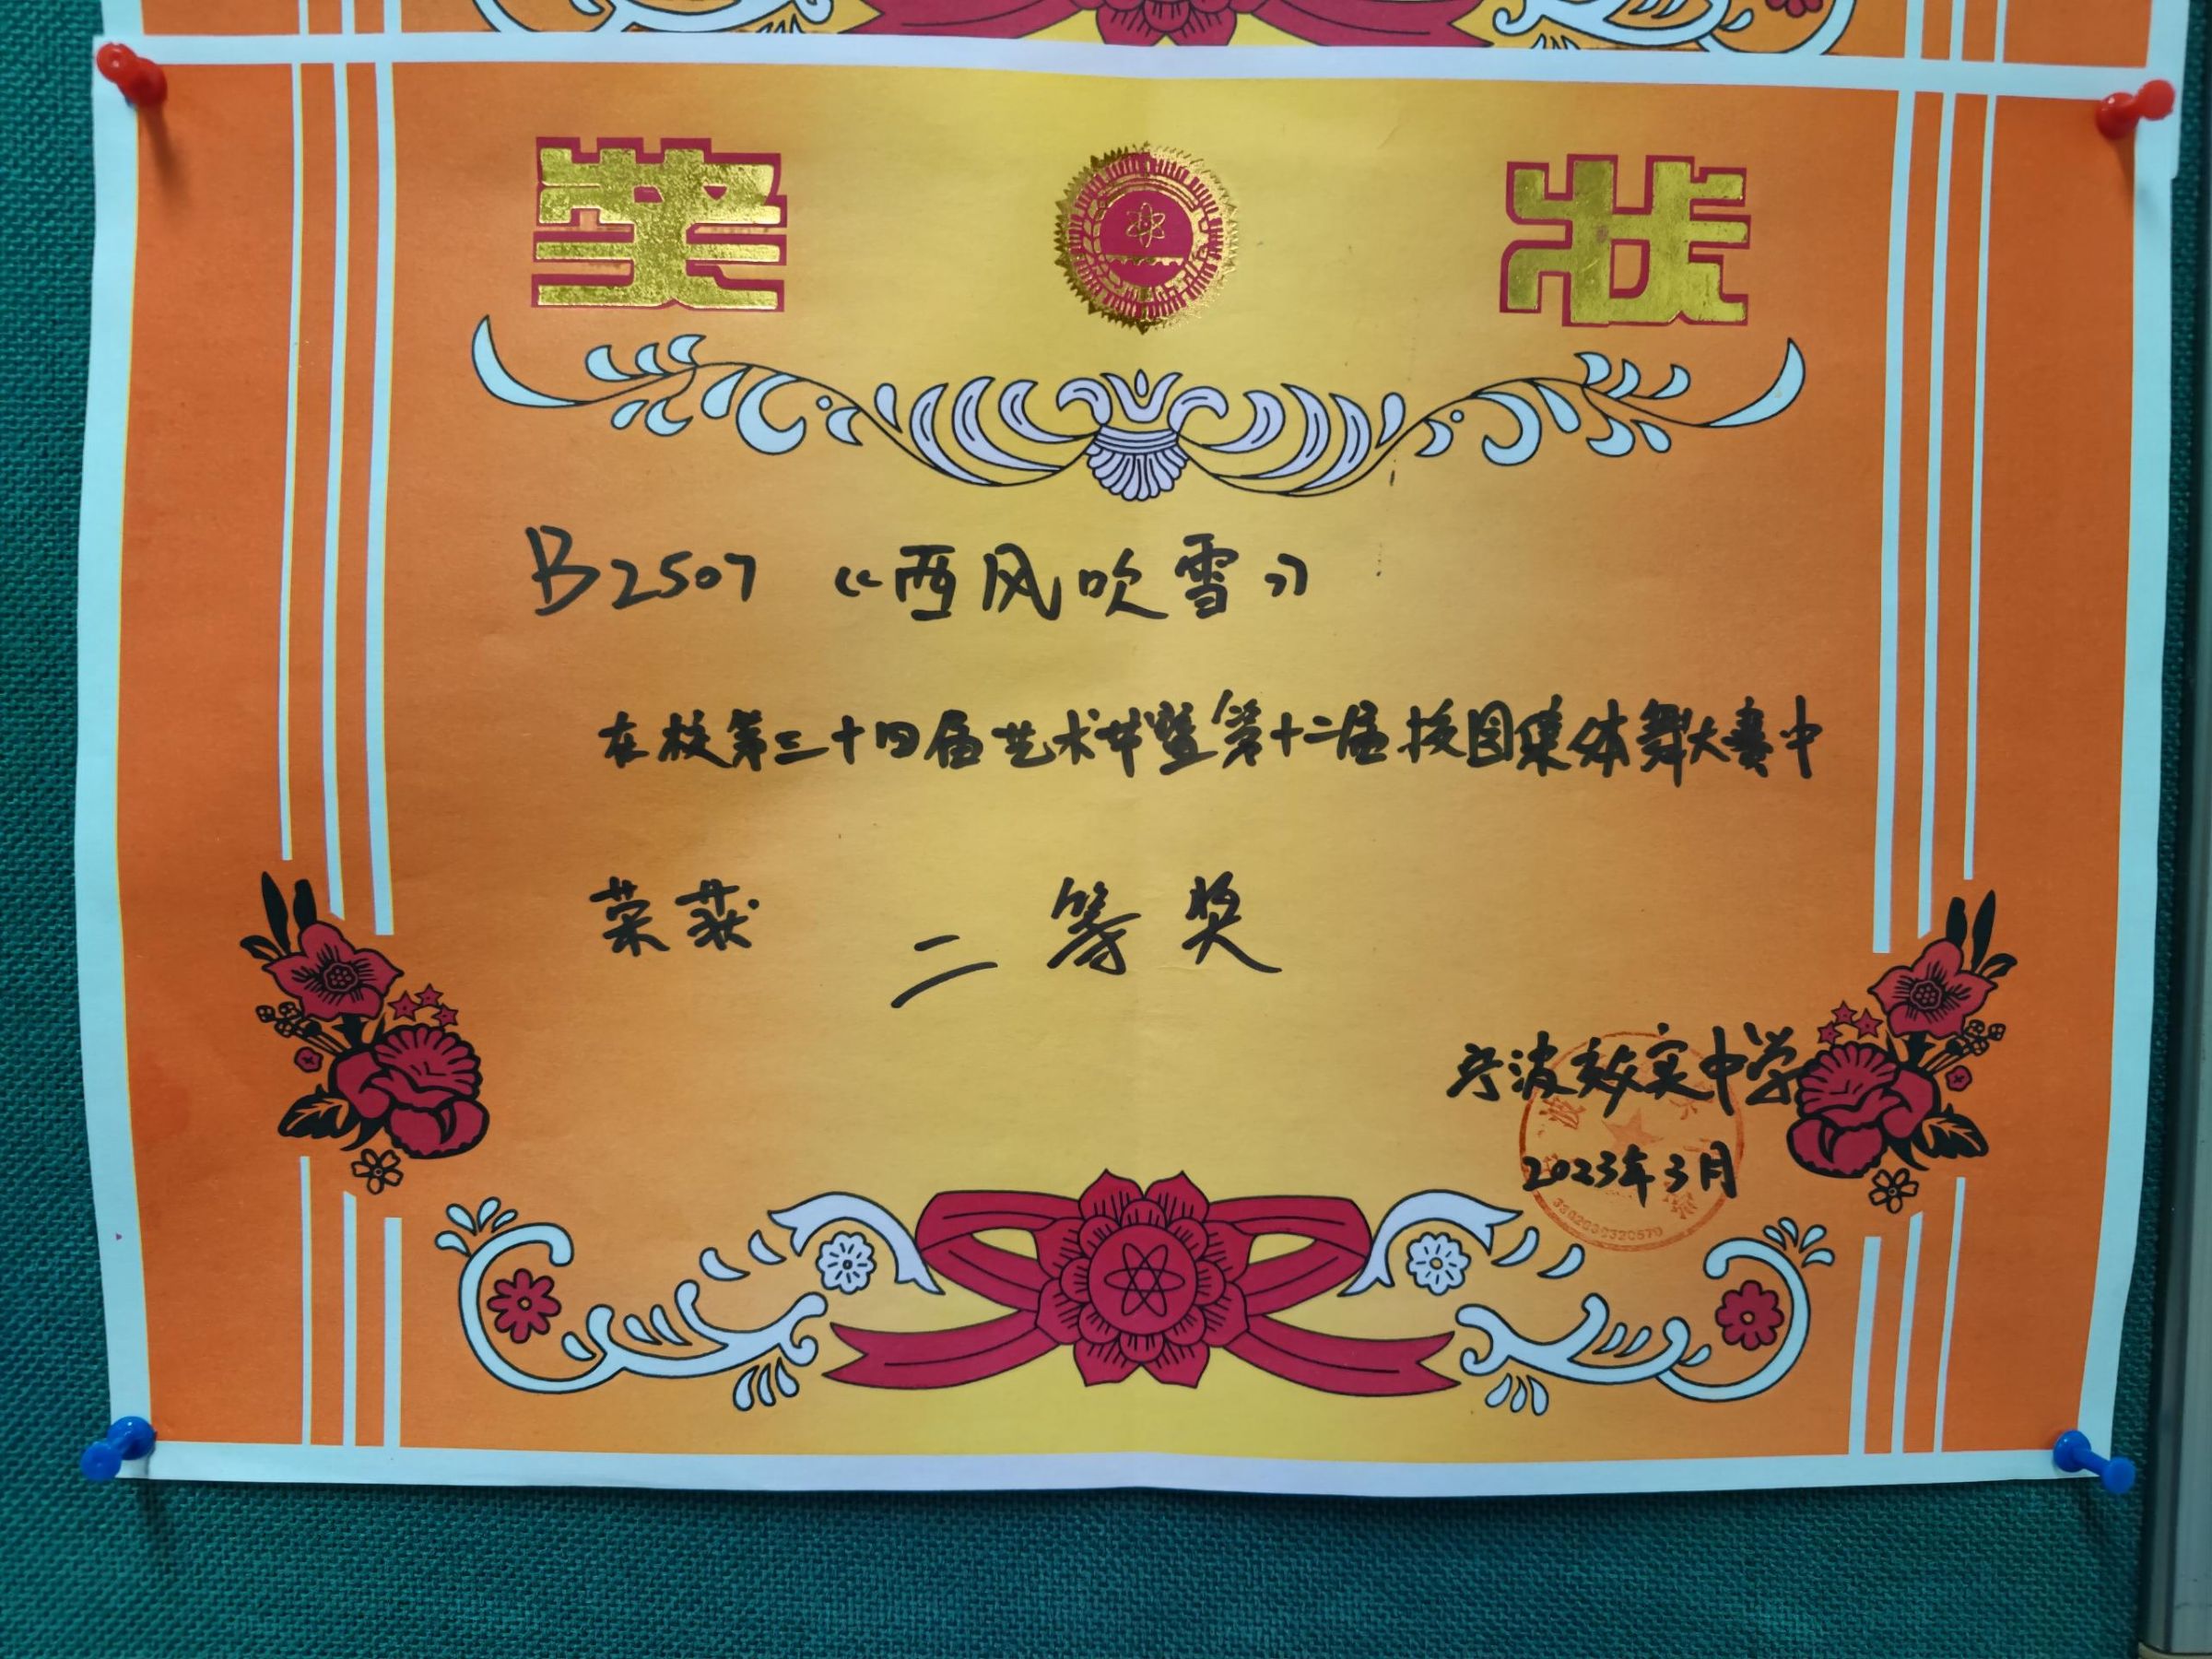 奖 状
B2507 《西风吹雪》
在校第三十四届艺术节暨第十二届校园集体舞大赛中
荣获 二等奖
宁波效实中学
2023年3月
3302030320570